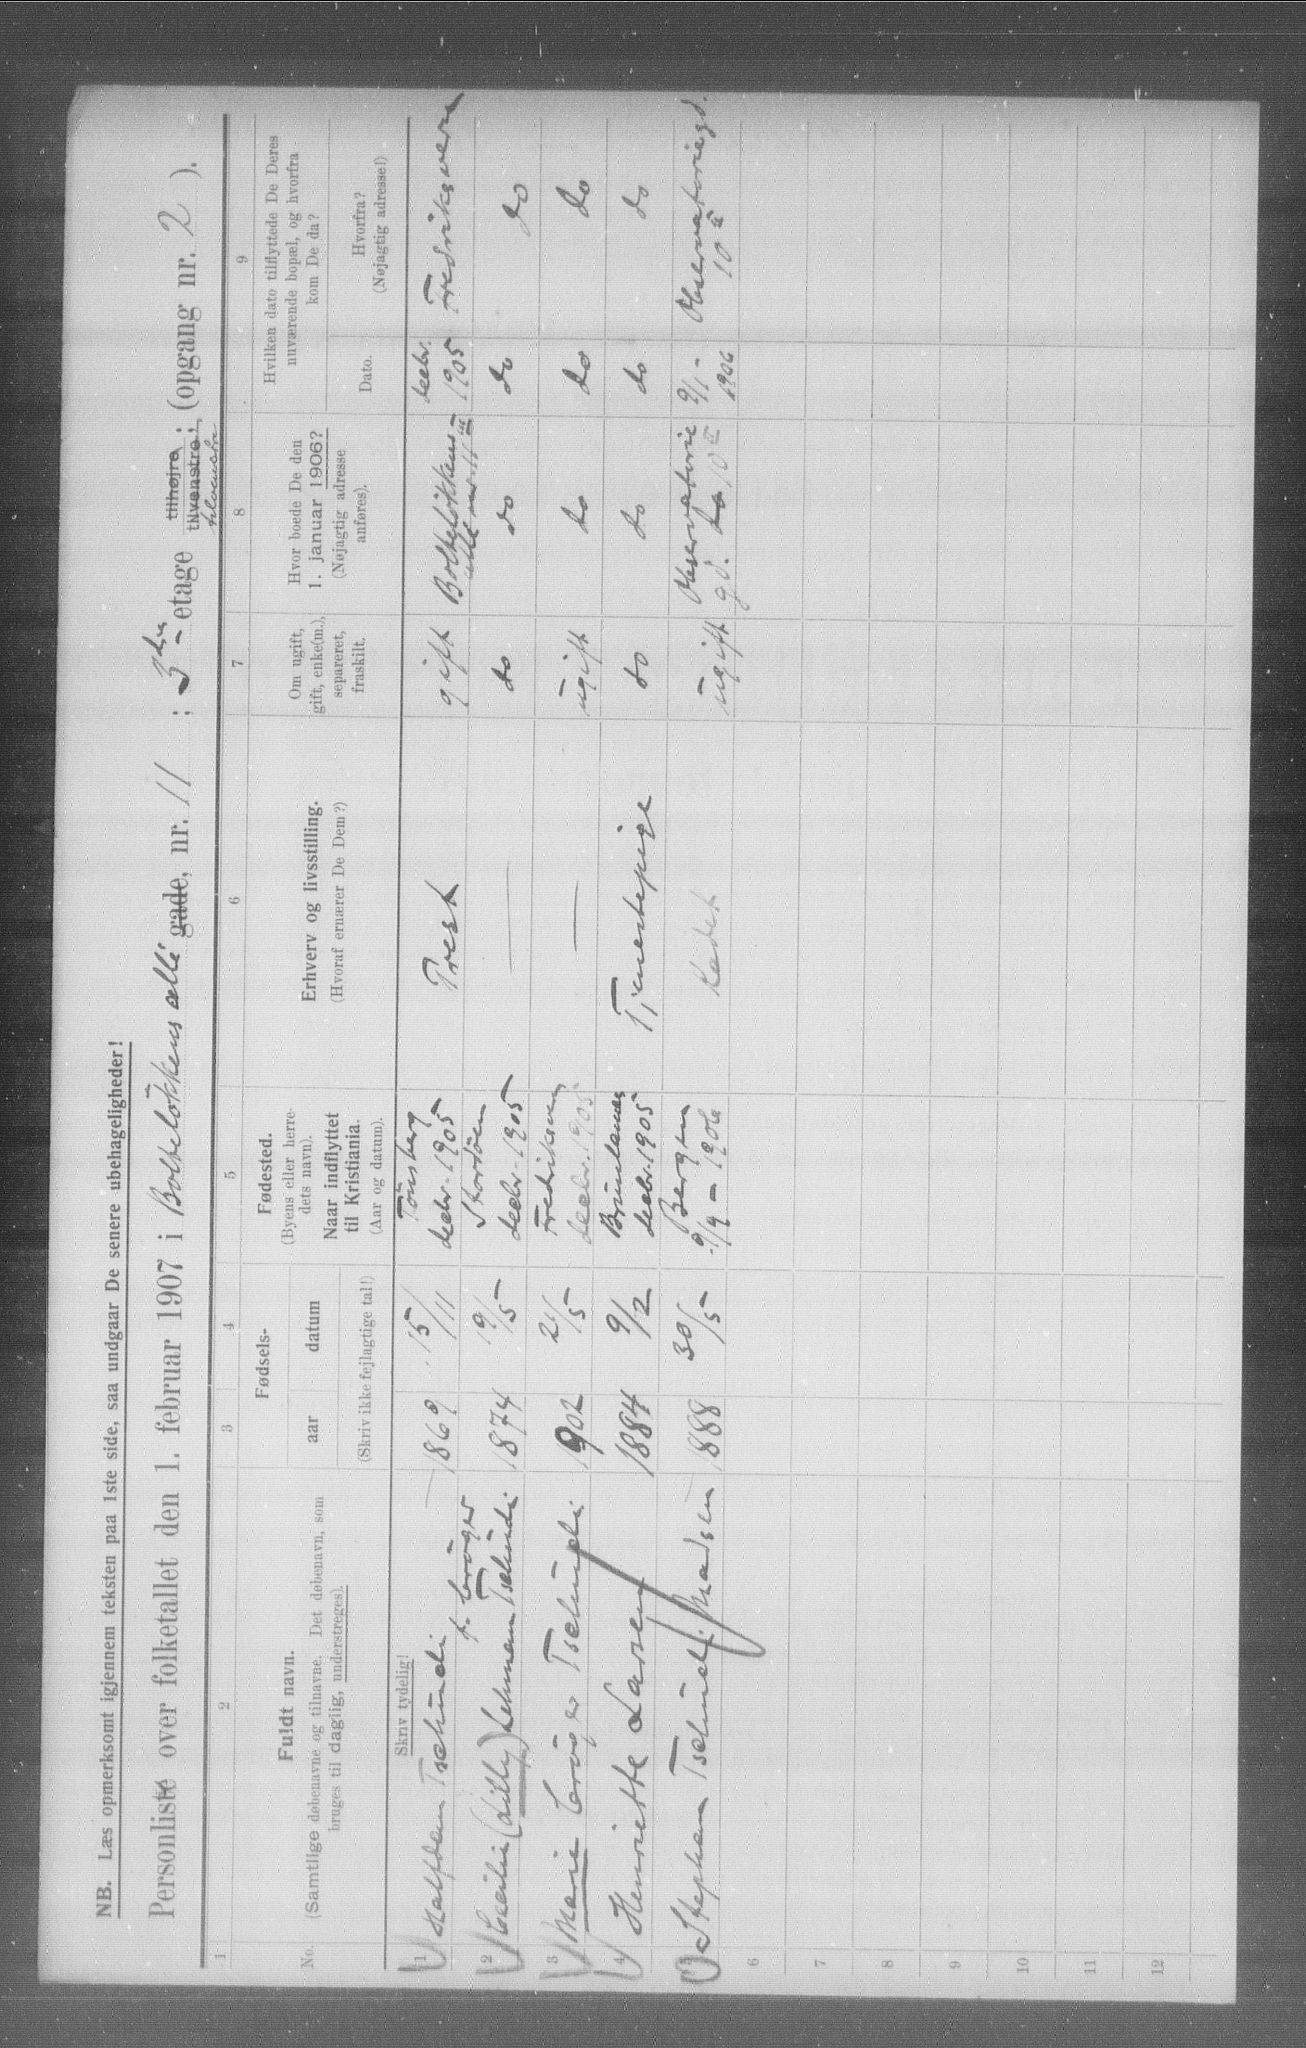 NB. Læs opmerksomt igjennem teksten paa 1ste side, saa undgaar De senere ubehageligheder!
Personliste over folketallet den 1. februar 1907 i Bolteløkkens allé gade, nr. 11 ; 3die - etage tilhøjre tilvenstre ; (opgang nr. 2 ).
tilvenstre
1 2 3 4 5 6 7 8 9
No.
Fuldt navn.
(Samtlige døbenavne og tilnavne. Det døbenavn, som
bruges til daglig, understreges).
Fødsels-
aar datum
(Skriv ikke fejlagtige tal!)
Fødested.
(Byens eller herre-
dets navn).
Naar indflyttet
til Kristiania.
(Aar og datum).
Erhverv og livsstilling.
(Hvoraf ernærer De Dem?)
Om ugift,
gift, enke(m.),
separeret,
fraskilt.
Hvor boede De den
1. januar 1906?
(Nøjagtig adresse
anføres).
Hvilken dato tilflyttede De Deres
nuværende bopæl, og hvorfra
kom De da?
Dato.
Hvorfra?
(Nøjagtig adresse!)
Skriv tydelig!
1 Halfdan Tschudi 1869 15/11 Tönsberg decbr. 1905 Prest gift Bolteløkkens- alle nr. 11 III decbr. 1905 Fredriksværn
2 Cecilie (Lilly) Lehmann Tschudi f. Cröger 1874 19/5 decbr. 1905 — do do do do
3 Marie Cröger Tschudi 1902 21/5 Fredriksværn decbr. 1905 — ugift do do do
4 Henriette Larsen 1884 9/2 Brunlanæs decbr. 1905 Tjenestepige do do do do
5 Stephan Tschudi Madsen 1888 30/5 Bergen 9/9 - 1906 Kadet ugift Observatorie gd. 10 II 9/1 - 1906 Observatoriegd. 10 II
6
7
8
9
10
11
12